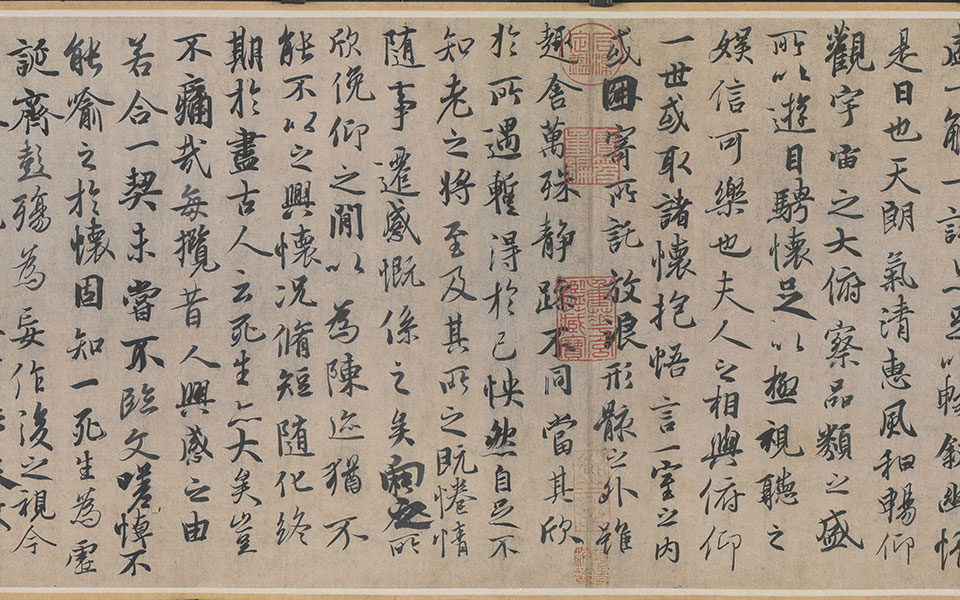 盛一觴一詠亦足以暢敘幽情
是日也天朗氣清惠風和暢仰
觀宇宙之大俯察品類之盛
所以遊目騁懷足以極視聽之
娛信可樂也夫人之相與俯仰
一世或取諸懷抱悟言一室之內
或因寄所託放浪形骸之外雖
趣舍萬殊靜躁不同當其欣
於所遇暫得於己怏然自足不
知老之將至及其所之既惓情
隨事遷感慨係之矣向之所
欣俛仰之閒以為陳迹猶不
能不以之興懷況脩短隨化終
期於盡古人云死生亦大矣豈
不痛哉每攬昔人興感之由
若合一契未嘗不臨文嗟悼不
能喻之於懷固知一死生為虛
誕齊彭殤為妄作後之視今